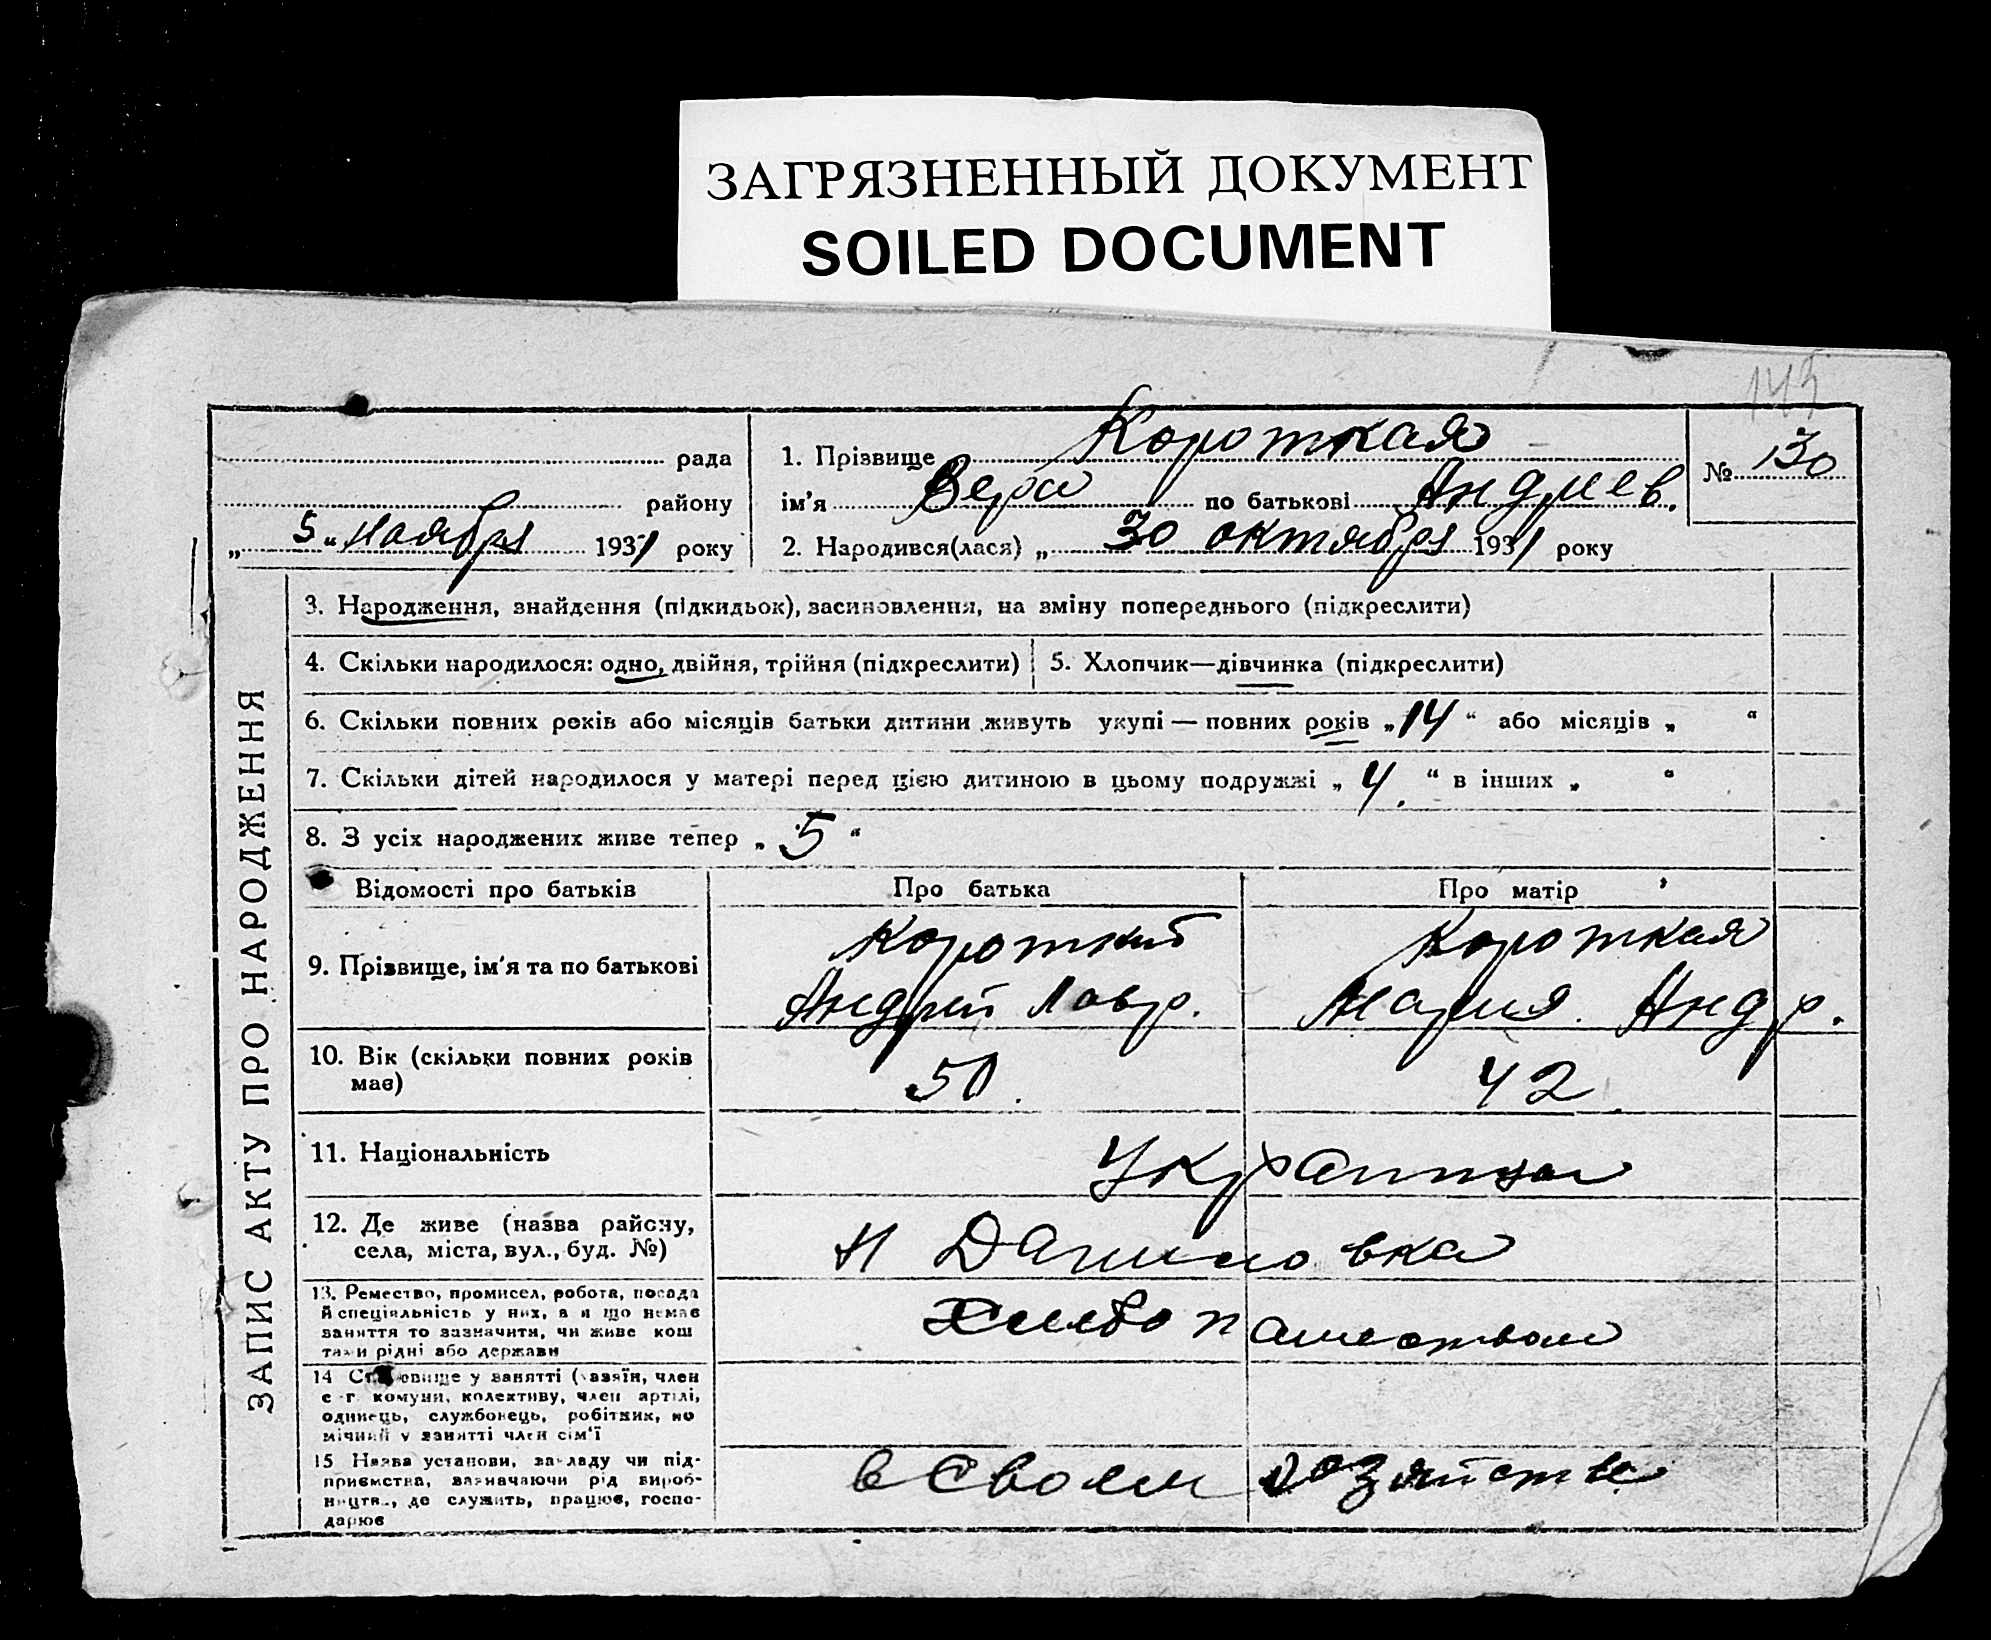 ЗАГРЯЗНЕННЫЙ ДОКУМЕНТ
SOILED DOCUMENT
143
рада
району
„ 5 “ ноября 1931 року
1. Прізвище Короткая
ім'я Вера по батькові Андреев.
2. Народився(лася) „ 30 октября 1931 року
№ 130
ЗАПИС АКТУ ПРО НАРОДЖЕННЯ
3. Народження, знайдення (підкидьок), засиновлення, на зміну попереднього (підкреслити)
4. Скільки народилося: одно, двійня, трійня (підкреслити)
5. Хлопчик—дівчинка (підкреслити)
6. Скільки повних років або місяців батьки дитини живуть укупі — повних років „ 14 “ або місяців „ “
7. Скільки дітей народилося у матері перед цією дитиною в цьому подружжі „ 4. “ в інших „ “
8. З усіх народжених живе тепер „ 5 “
Відомості про батьків
Про батька
Про матір
9. Прізвище, ім'я та по батькові
Короткий
Андрей Лавр.
Короткая
Мария. Андр.
10. Вік (скільки повних років
має)
50.
42
11. Національність
12. Де живе (назва району,
села, міста, вул., буд. №)
Н Даниловка
13. Ремество, промисел, робота, посада
й спеціяльність у них, а я що немає
заняття то зазначити, чи живе кош
тами рідні або держави
14 Становище у занятті (хазяїн, член
с-г комуни, колективу, член артілі,
одинець, службонець, робітник, по
мічний у занятті член сім'ї
15 Назва установи, закладу чи під-
приємства, вазначаючи рід вироб-
ництв., де служить, працює, госпо-
дарює
в своем хозяйстве